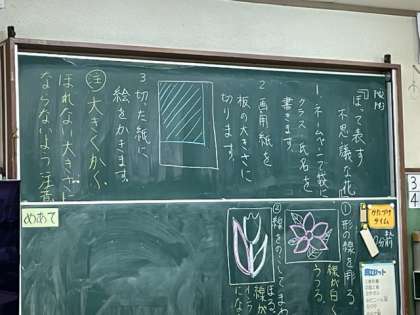 ほって表す
不思議な花
1. ネームペンで板に
クラス・氏名を
書きます。
2 画用紙を
板の大きさに
切ります。
3 切った紙に
絵をかきます。
注 大きくかく
ほれない大きさに
ならないよう注意
めあて
かたづけ
タイム
分前
① 形の線を彫る
線が白く
うつる。
② 線をのこしてまわ
ほる。
線が
3
4